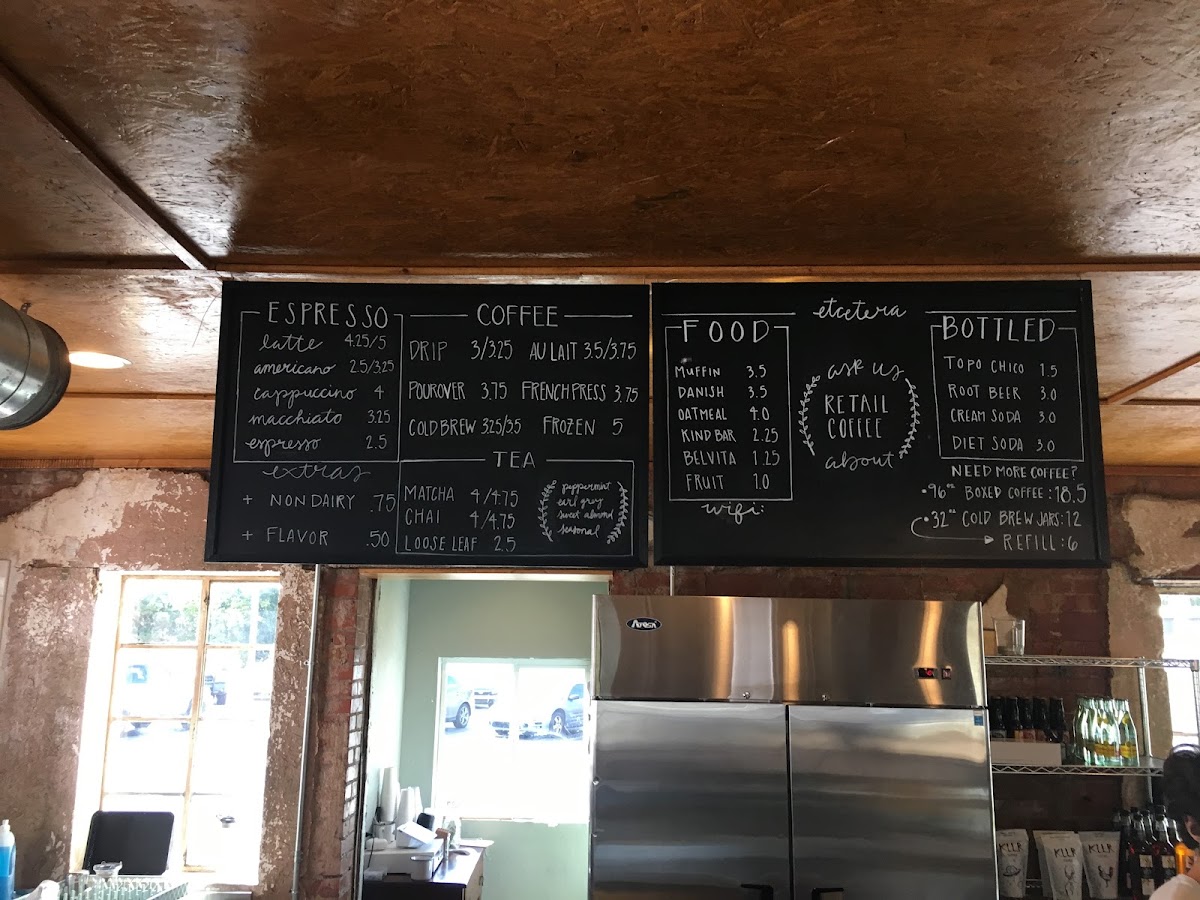 ESPRESSO
latte 4.25/5
americano 2.5/3.25
cappuccino 4
macchiato 3.25
espresso 2.5
extras
+ NONDAIRY .75
+ FLAVOR .50
COFFEE
DRIP 3/3.25 AU LAIT 3.5/3.75
POUROVER 3.75 FRENCH PRESS 3.75
COLD BREW 3.25/3.5 FROZEN 5
TEA
MATCHA 4/4.75
CHAI 4/4.75
LOOSE LEAF 2.5
peppermint
earl grey
sweet almond
seasonal
etcetera
FOOD
MUFFIN 3.5
DANISH 3.5
OATMEAL 4.0
KIND BAR 2.25
BELVITA 1.25
FRUIT 1.0
wifi:
ask us
RETAIL
COFFEE
about
BOTTLED
TOPO CHICO 1.5
ROOT BEER 3.0
CREAM SODA 3.0
DIET SODA 3.0
NEED MORE COFFEE?
•96oz BOXED COFFEE: 18.5
•32oz COLD BREW JARS: 12
REFILL: 6
Atosa
KLLR
KLLR
KLLR